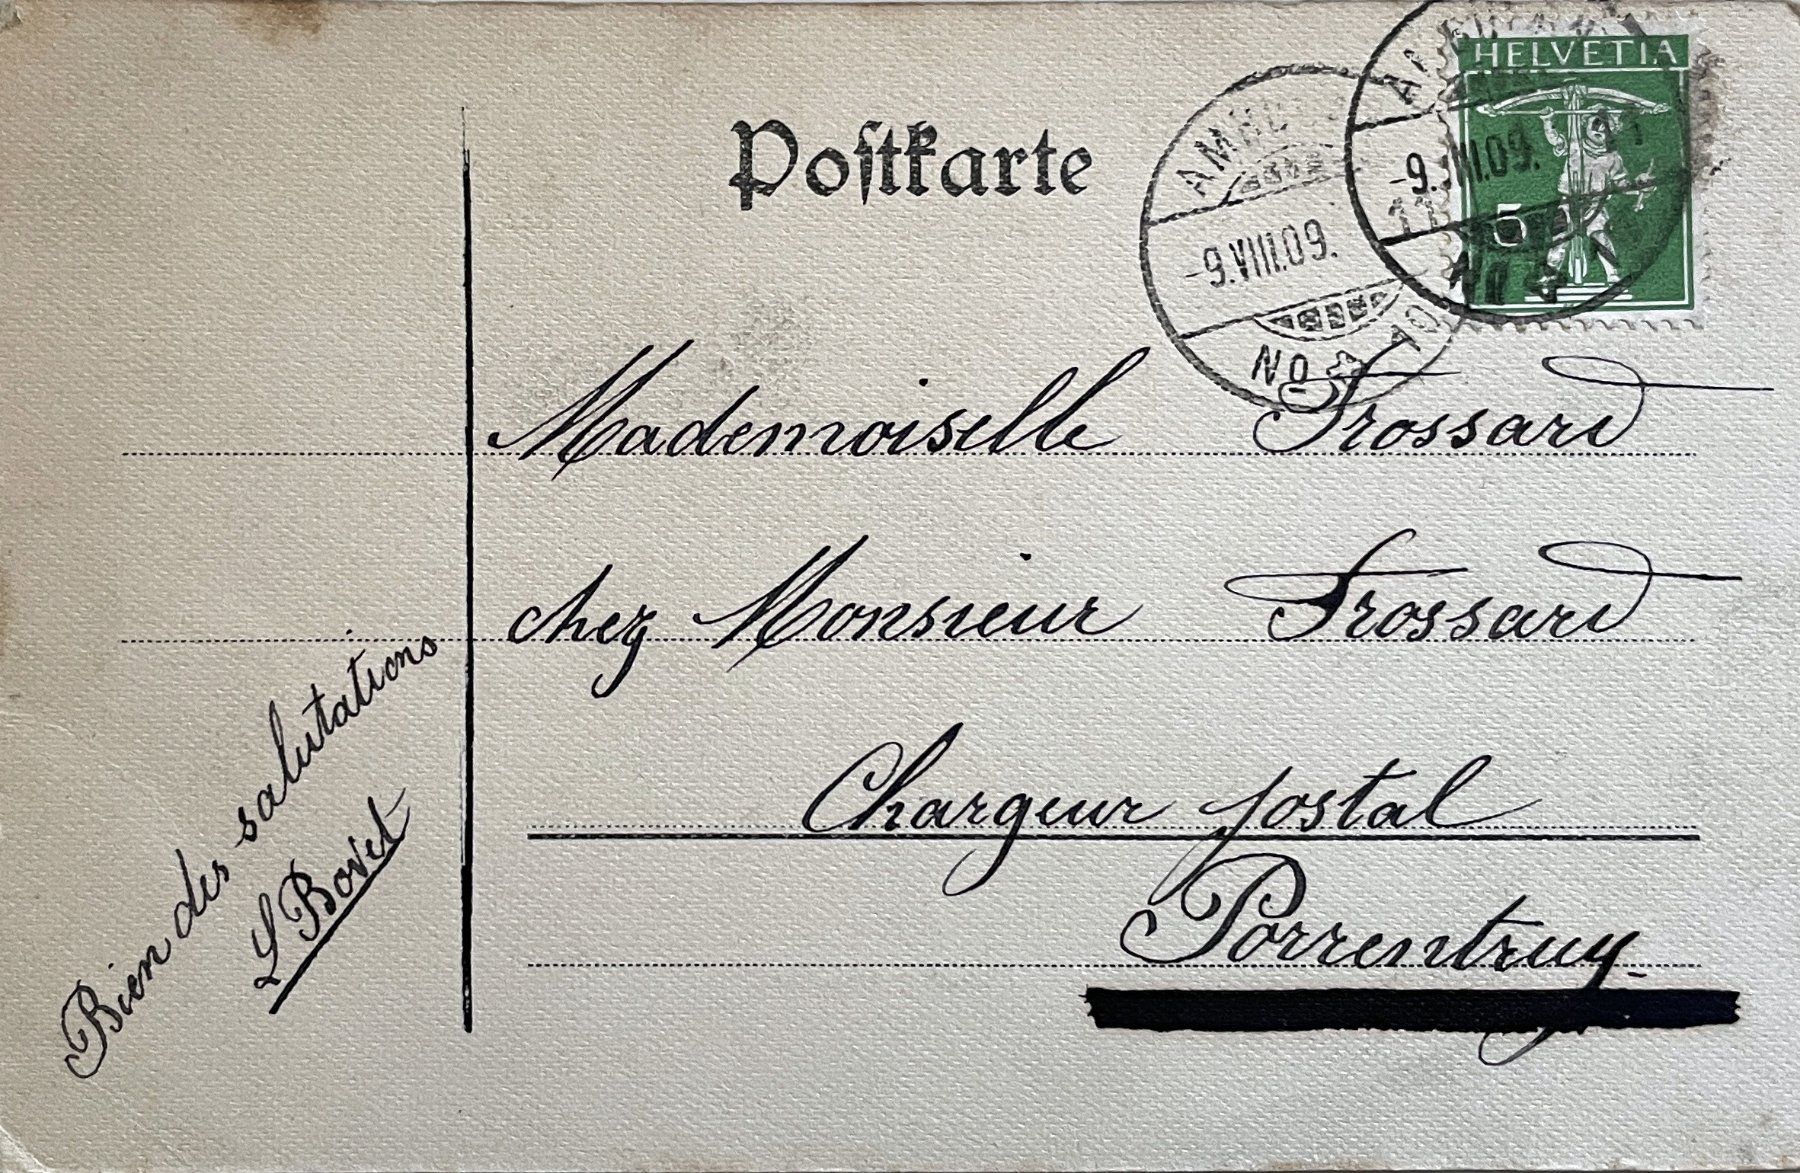 Postkarte
HELVETIA
5
-9.VIII.09.
-9.VIII.09. 11
11
Mademoiselle Frossard
chez Monsieur Frossard
Chargeur postal
Porrentruy.
Bien des salutations
L Bovet